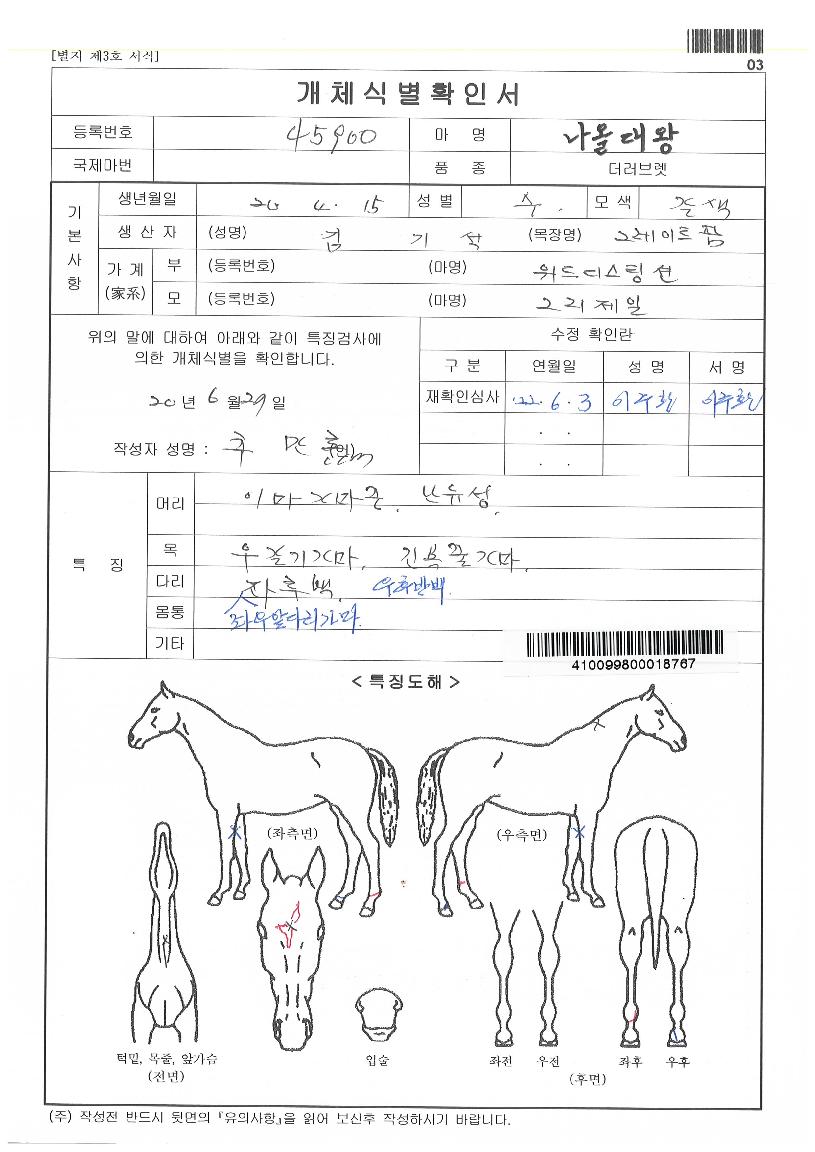 [별지 제3호 서식]
03
개체식별확인서
등록번호 45900 마 명 나올대왕
국제마번 품 종 더러브렛
기본사항
생년월일 20 4. 15 성별 수. 모색 갈색
생산자 (성명) 김기석 (목장명) 그레이트팜
가계 (家系) 부 (등록번호) (마명) 위드디스팅션
모 (등록번호) (마명) 그리제일
위의 말에 대하여 아래와 같이 특징검사에
의한 개체식별을 확인합니다.
20년 6월 29일
작성자 성명 :
수정 확인란
구분 연월일 성명 서명
재확인심사 '22. 6. 3 이주환 이주환
. .
. .
특 징
머리 이마가마중, 난유성.
목 우중기가마, 가마.
다리 좌후백, 우후반백.
몸통 좌우앞다리가마.
기타
410099800018767
< 특징도해 >
(좌측면) (우측면)
턱밑, 목줄, 앞가슴 (전면)
입술
좌전 우전 좌후 우후
(후면)
(주) 작성전 반드시 뒷면의 『유의사항』을 읽어 보신후 작성하시기 바랍니다.